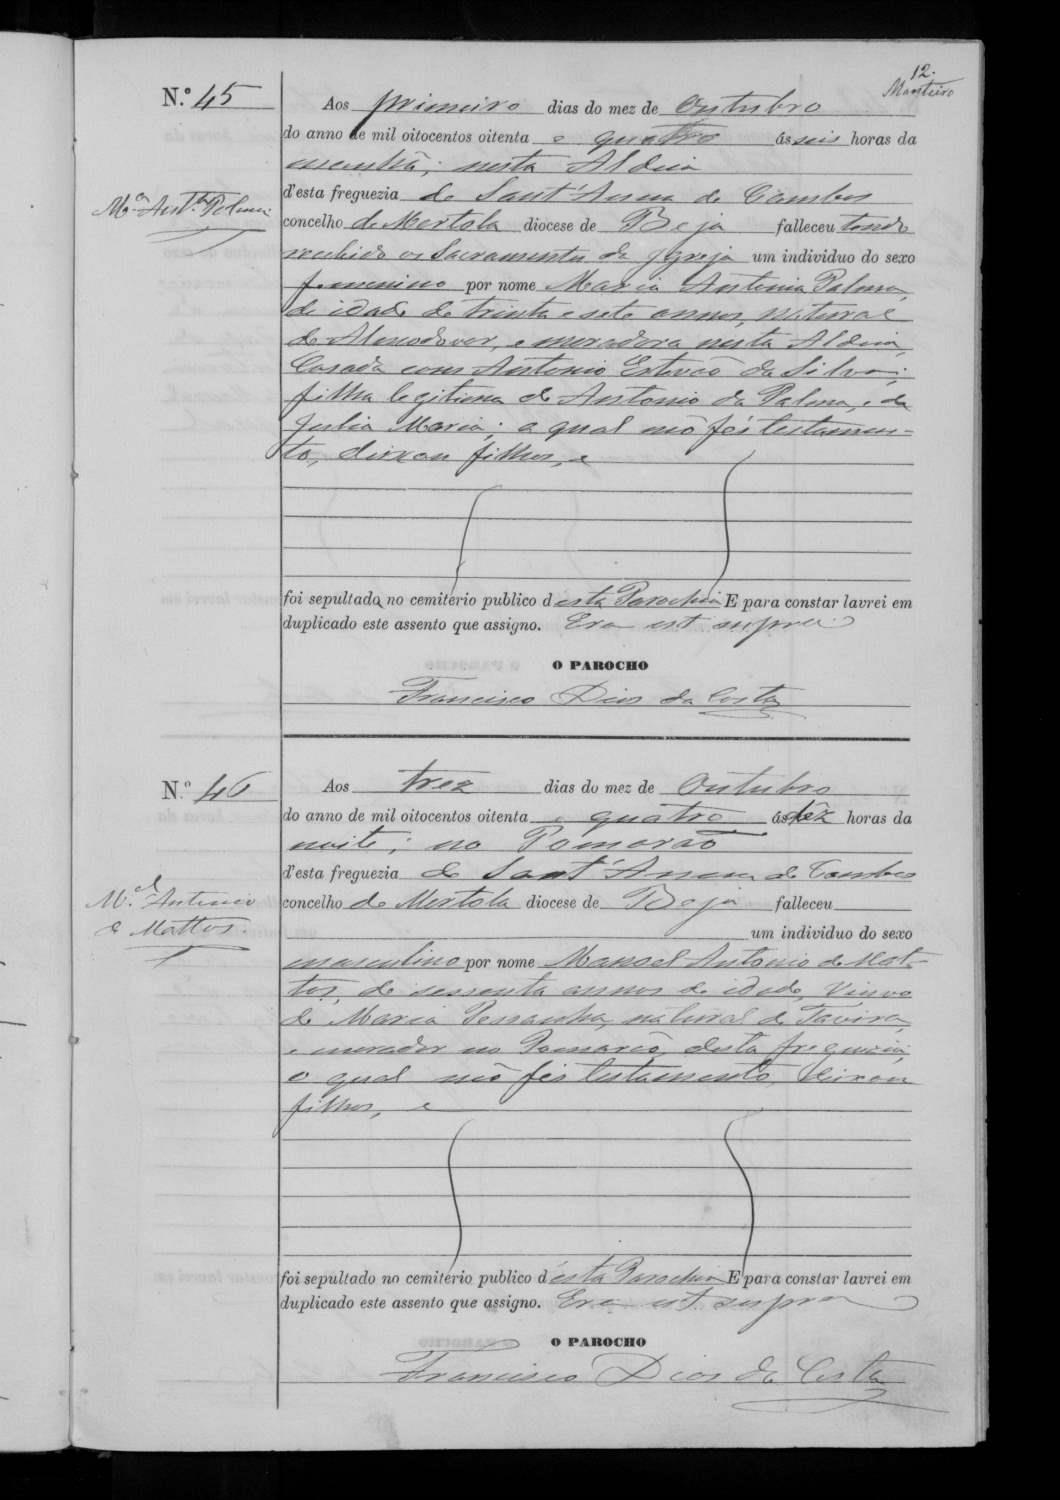 12.
Monteiro
N.º 45
Aos primeiro dias do mez de Outubro
do anno de mil oitocentos oitenta e quatro ás seis horas da
manhã; nesta Aldeia
d'esta freguezia de Sant'Anna de Cambas
Mª Antª Palma
concelho de Mertola diocese de Beja falleceu tendo
recebido os Sacramentos da Igreja um individuo do sexo
femenino por nome Maria Antonia Palma,
de idade de trinta e sete annos, natural
de Almodovar, e moradora nesta Aldeia,
Casada com Antonio Estevão da Silva;
filha legitima de Antonio da Palma, e de
Julia Maria; a qual não fés testamen-
to, deixou filhos, e
foi sepultada no cemiterio publico d'esta Parochia E para constar lavrei em
duplicado este assento que assigno. Era ut supra
O PAROCHO
Francisco Dias da Costa
N.º 46
Aos trez dias do mez de Outubro
do anno de mil oitocentos oitenta e quatro ás déz horas da
noite; no Pomarão
d'esta freguezia de Sant'Anna de Cambas
Mel Antonio
de Mattos.
concelho de Mertola diocese de Beja falleceu
um individuo do sexo
masculino por nome Manoel Antonio de Mat-
tos, de sessenta annos de idade, Viuvo
de Maria Pessanha, natural de Tavira,
e morador no Pomarão, desta freguezia;
o qual não fés testamento, deixou
filhos, e
foi sepultado no cemiterio publico d'esta Parochia E para constar lavrei em
duplicado este assento que assigno. Era ut supra
O PAROCHO
Francisco Dias da Costa